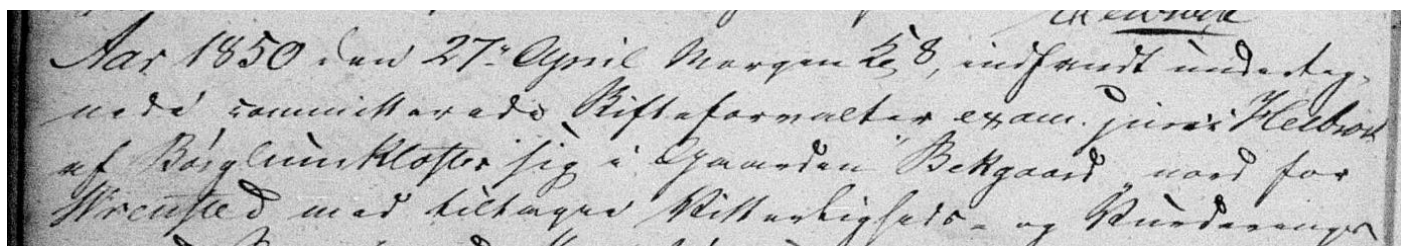 Aar 1850 den 27r April Morgen Kl 8, indfandt underteg-
nede committerede Skifteforvalter exam. juris Heilbroth
af Børglumkloster sig i Gaarden "Bekgaard" nord for
Wrensted med tiltagne Vitterligheds- og Vurderings